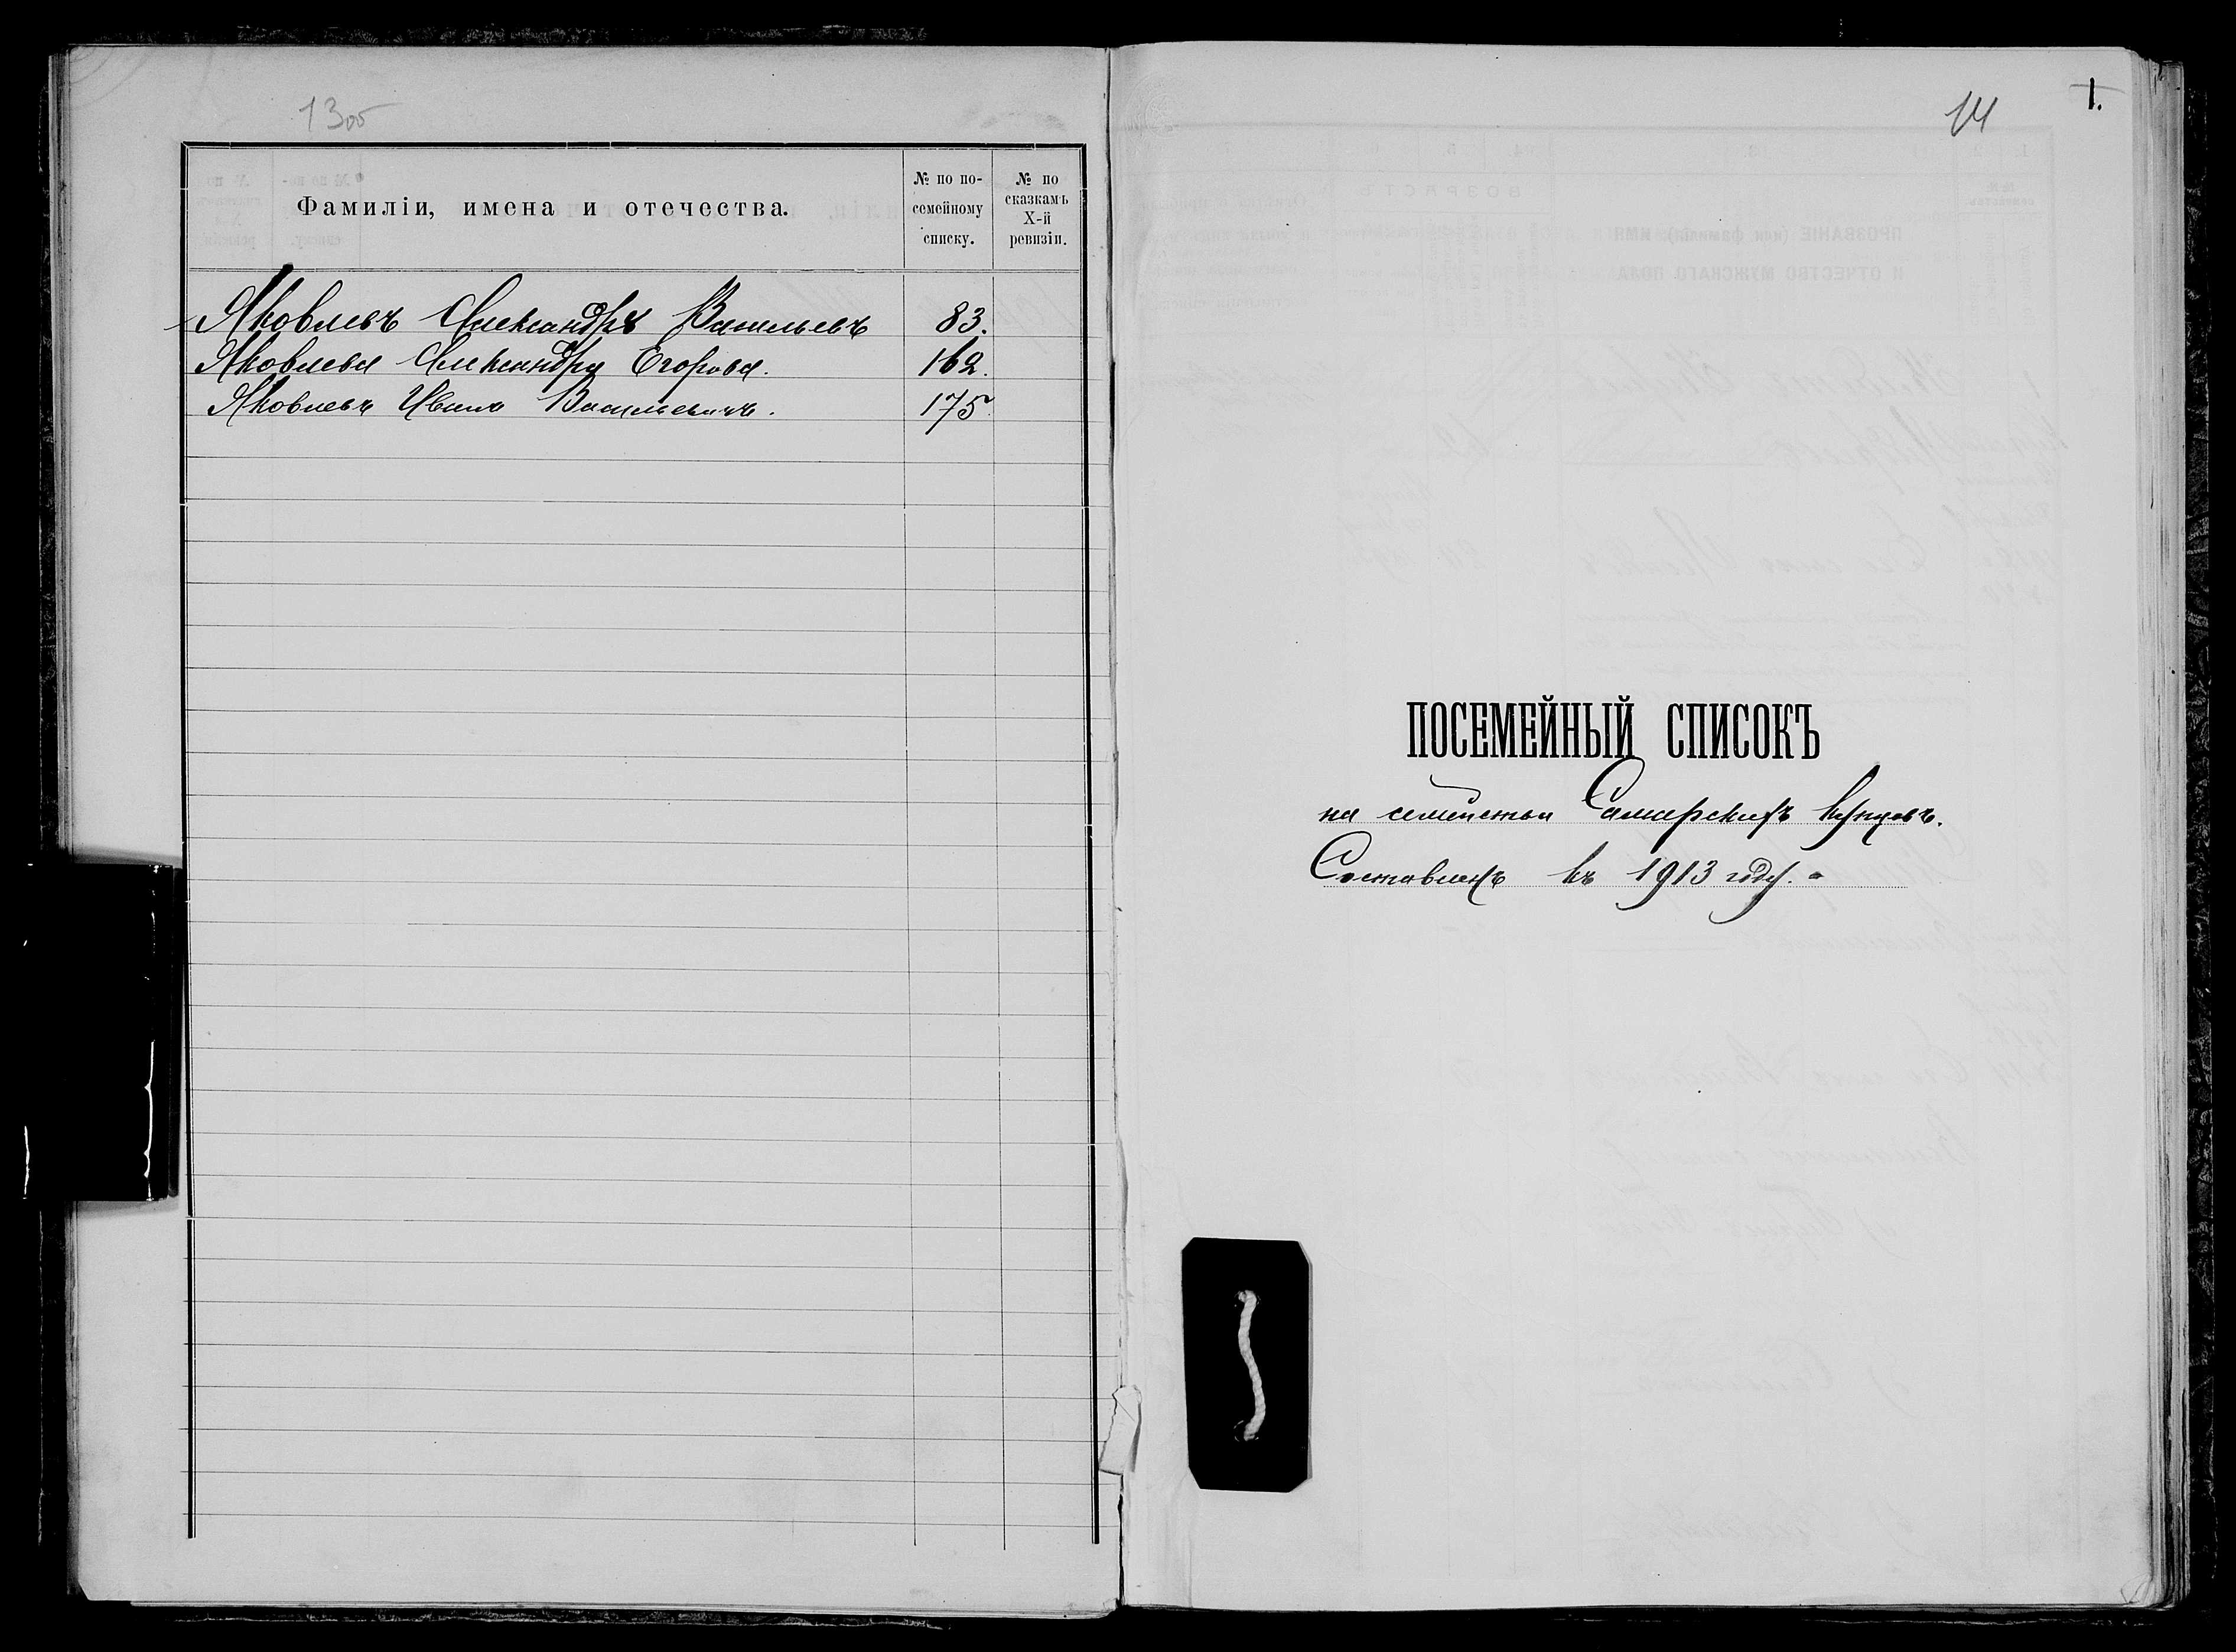 13об
Фамиліи, имена и отечества.
№ по по-
семейному
списку.
№ по
сказкамъ
X-й
ревизіи.
Яковлевъ Александръ Васильевъ 83.
Яковлева Александра Егорова. 162.
Яковлевъ Иванъ Васильевичъ. 175
14
1.
ПОСЕМЕЙНЫЙ СПИСОКЪ
на семейства Самарскихъ купцовъ.
Составленъ въ 1913 году.